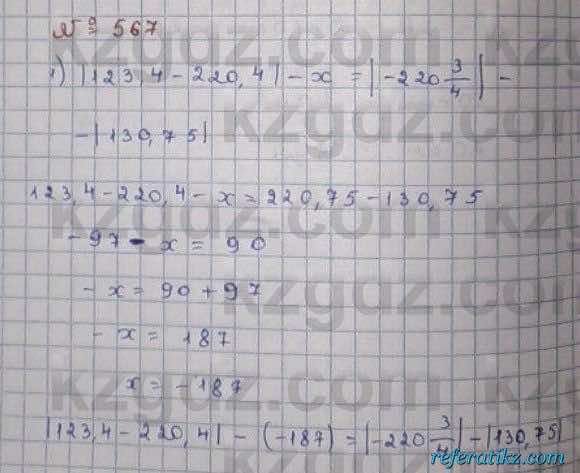 № 567
1) |123,4 - 220,4| - x = |-220 3/4| -
- |130,75|
123,4 - 220,4 - x = 220,75 - 130,75
- 97 - x = 90
- x = 90 + 97
- x = 187
x = - 187
|123,4 - 220,4| - (-187) = |-220 3/4| - |130,75|
kzgdz.com
referatikz.com